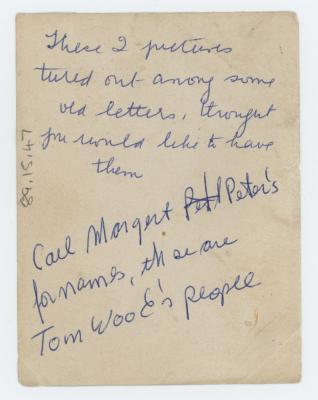 These 2 pictures
tured out among some
old letters, throught
you would like to have
them
Carl Margert Peter's
fornames, these are
Tom Wood's people
89.15.47